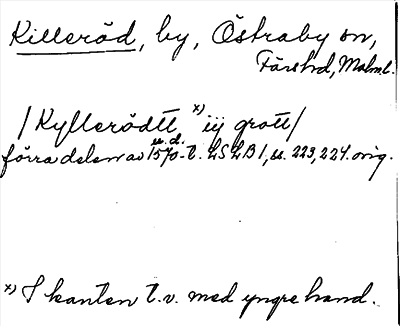 Killeröd, by, Östraby sn,
Färs hd, Malm.l.
/Kyllerödtt x) iij grott/
u.d.
förra delen av 1570-t. LSLB1, s. 223, 224. orig.
x) I kanten t.v. med yngre hand.